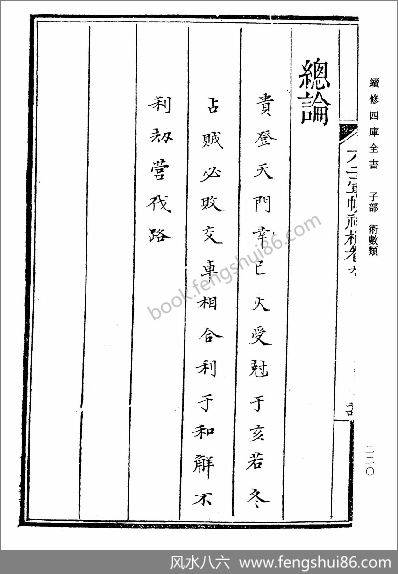 續修四庫全書 子部 術數類
二二〇
六壬軍帳神機卷
總論
貴登天門幸巳火受尅于亥若冬
占賊必敗交車相合利于和解不
利刼營伐路
book.fengshui86.com
风水八六 - www.fengshui86.com